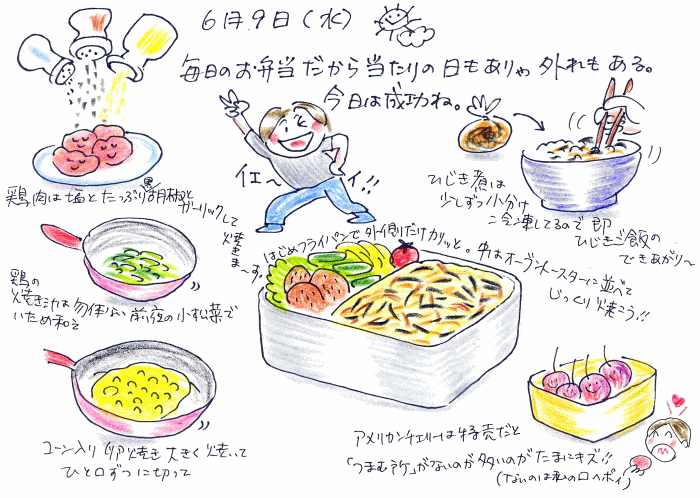 6月9日(水)
毎日のお弁当だから当たりの日もありゃ外れもある。
今日は成功ね。
イエ〜
イ!!
鶏肉は塩とたっぷり黒胡椒と
ガーリックして
焼きま〜す。
はじめフライパンで外側だけカリッと。中はオーブントースターに並べて
じっくり焼こう!!
ひじき煮は
少しずつ小分け
冷凍してるので即
ひじきご飯の
できあがり〜
鶏の
焼き汁は勿体ない前夜の小松菜で
いため和え
コーン入り卵焼き大きく焼いて
ひと口ずつに切って
アメリカンチェリーは特売だと
「つまむ所」がないのが多いのがたまにキズ!!
(ないのは私の口へポイ)